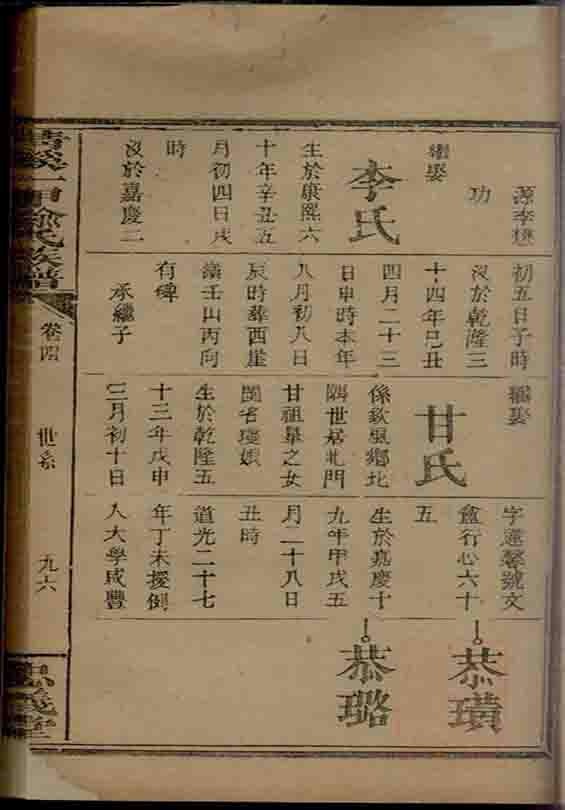 源李懋
功
繼娶
李氏
生於康熙六
十年辛丑五
月初四日戌
時
沒於嘉慶二
初五日子時
沒於乾隆三
十四年己丑
四月二十三
日申時本年
八月初八日
辰時葬西崖
嶺壬山丙向
有碑
承繼子
繼娶
甘氏
係欽風鄉北
隅世居北門
甘祖畢之女
閨省瓊娘
生於乾隆五
十三年戊申
三月初十日
字蓮馨號文
盦行心六十
五
生於嘉慶十
九年甲戌五
月二十八日
丑時
道光二十七
年丁未援例
入大學咸豐
恭璜
恭璐
一甲氏族譜
卷四
世系
九六
忠義堂